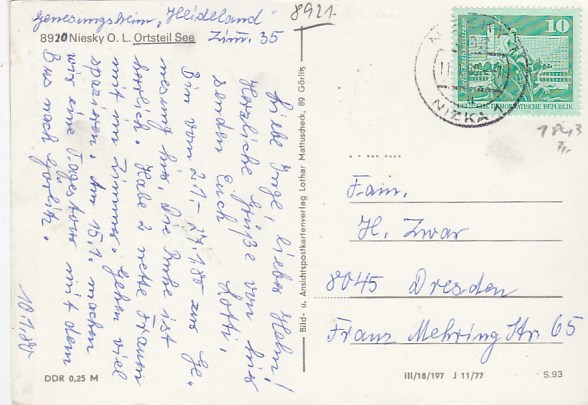 Genesungsheim „Heideland"
8921
8920 Niesky O. L. Ortsteil See
Zim. 35
Liebe Inge, lieber Hehn!
Herzliche Grüße von hier
senden Euch Lotti.
Bin vom 2.1. – 27.1.80 zur Ge-
nesung hier, die Ruhe ist
herrlich. Habe 2 nette Frauen
mit im Zimmer. Gehen viel
spazieren. Am 15.1. machen
wir eine Tagestour mit dem
Bus nach Görlitz.
10.1.80
DDR 0,25 M
Bild- u. Ansichtspostkartenverlag Lothar Mattuscheck, 89 Görlitz
10
DEUTSCHE DEMOKRATISCHE REPUBLIK
Fam.
H. Zwar
8045 Dresden
Franz Mehring Str 65
III/18/197 J 11/77
S.93